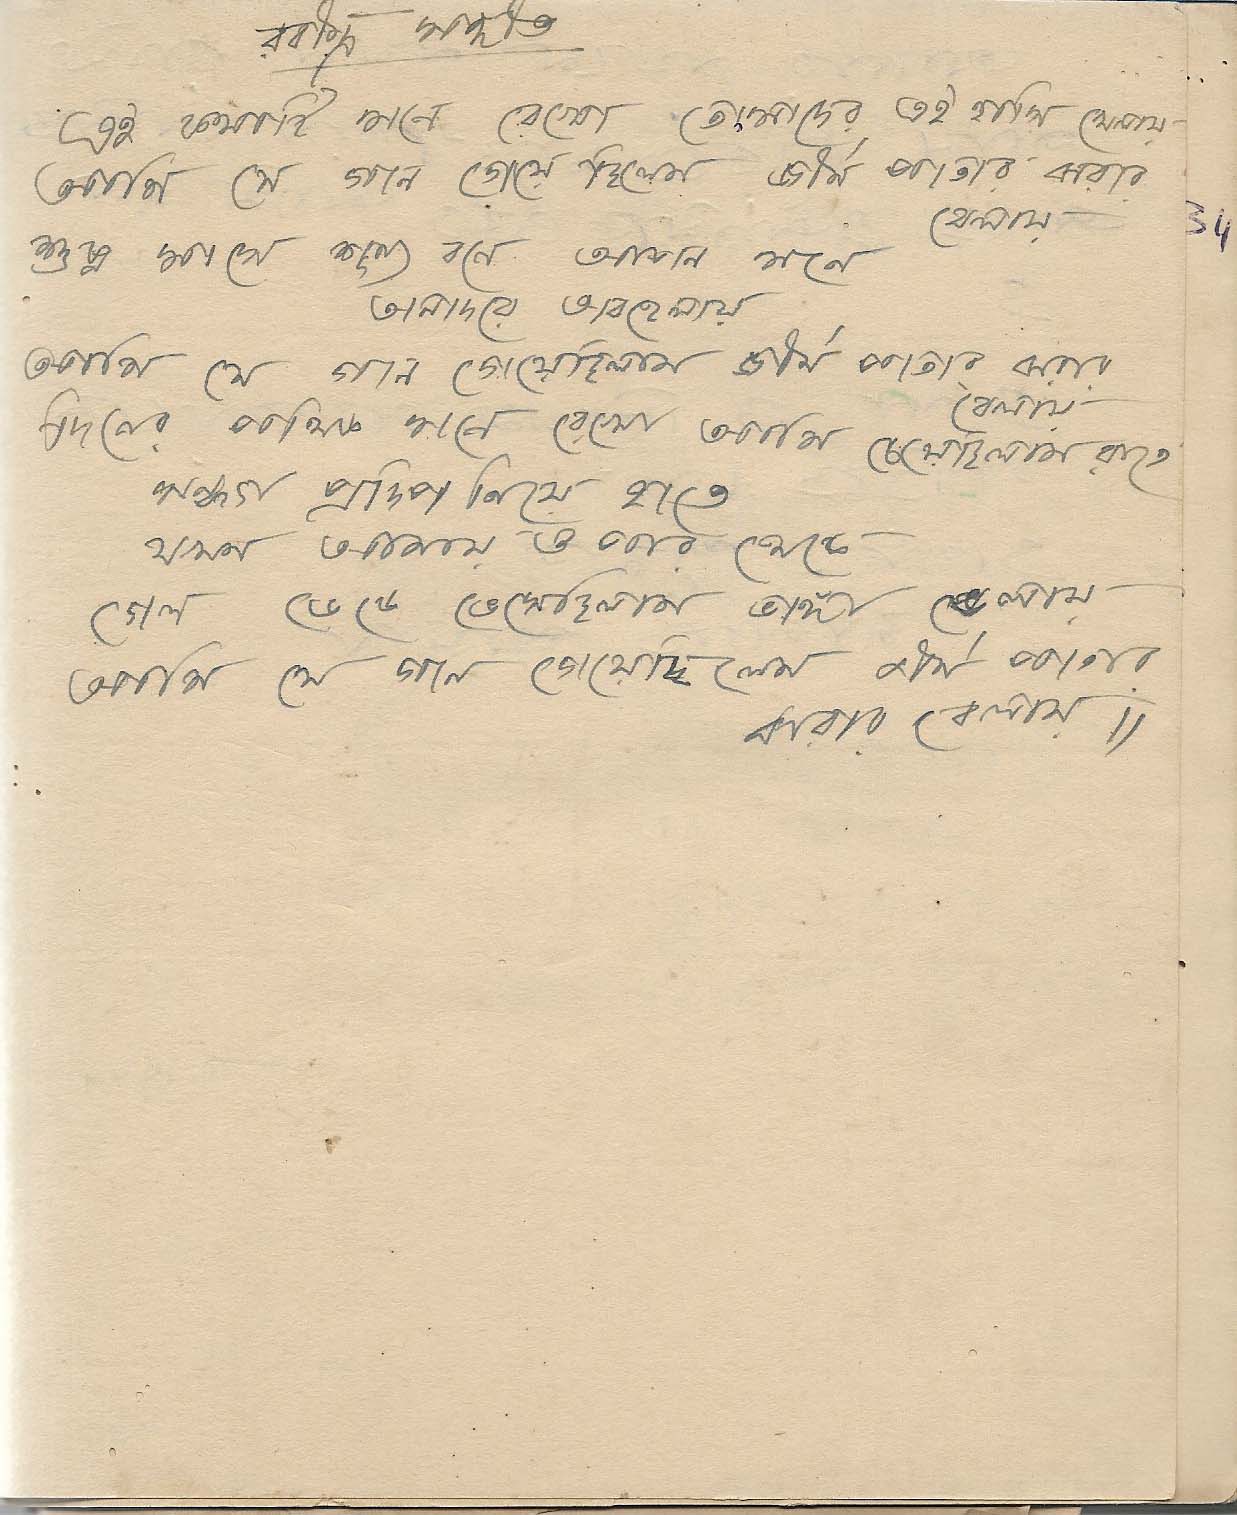 রবীন্দ্র সঙ্গীত
এই কথাটি মনে রেখো তোমাদের এই হাসি খেলায়
আমি যে গান গেয়ে ছিলেম জীর্ণ পাতার ঝরার
বেলায়
34
শুষ্ক ঘাসে শূন্য বনে আপন মনে
অনাদরে অবহেলায়
আমি যে গান গেয়েছিলাম জীর্ণ পাতার ঝরার
বেলায়
দিনের পথিক মনে রেখো আমি চলেছিলাম রাতে
সন্ধ্যা প্রদিপ নিয়ে হাতে
যখন আমায় ও পার থেকে
গেল ডেকে ভেসেছিলাম ভাঙ্গা ভেলায়
আমি যে গান গেয়েছিলেম জীর্ণ পাতার
ঝরার বেলায় ॥